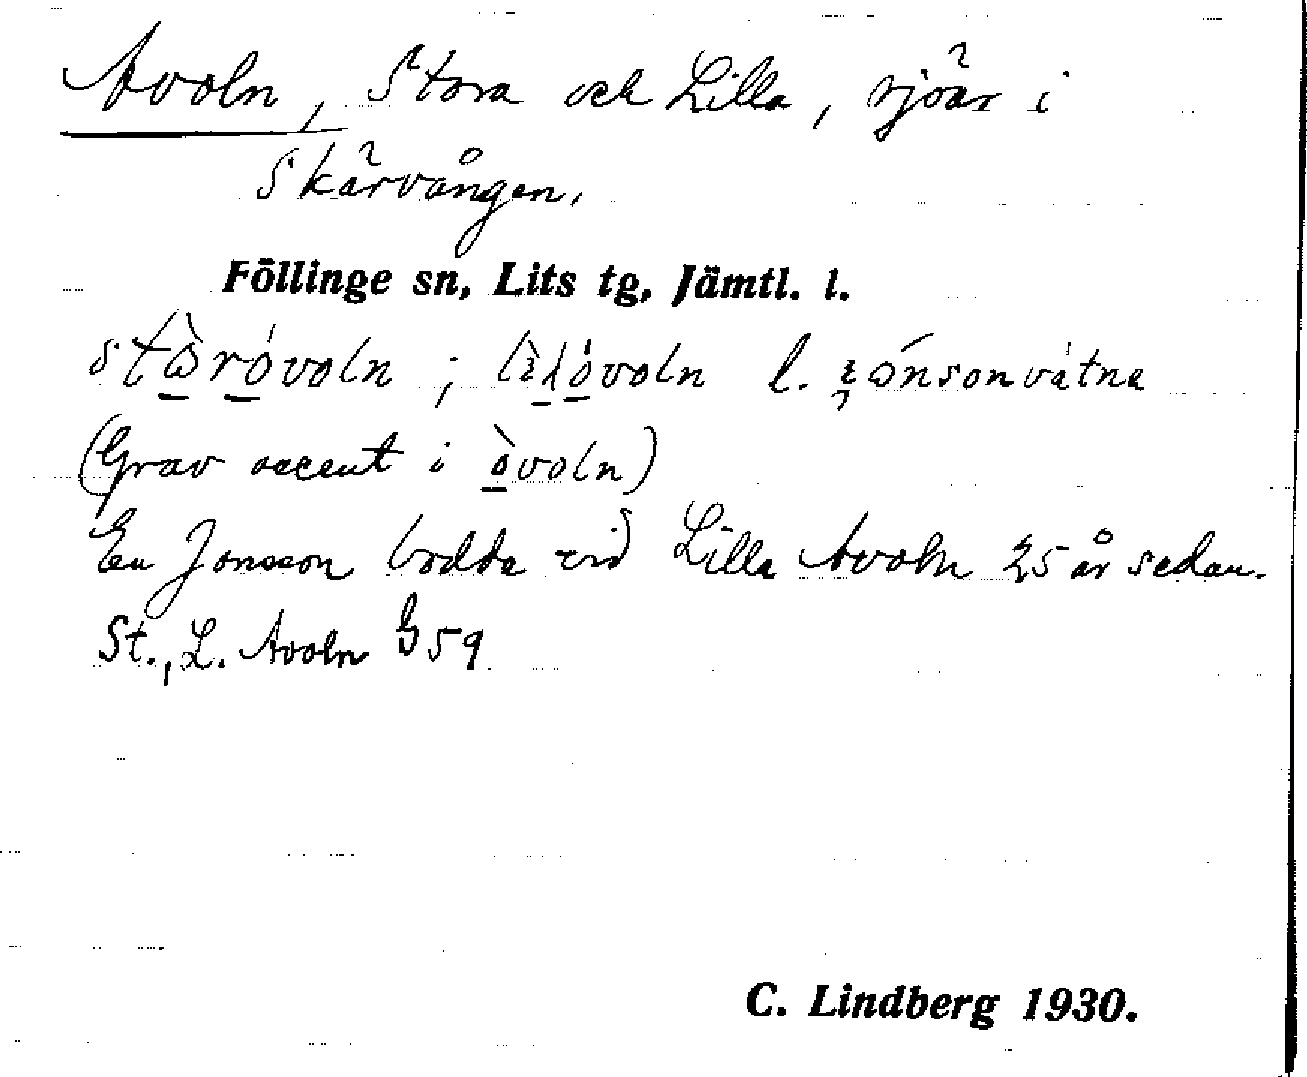 Avoln, Stora och Lilla, sjöar i
Skärvången.
Föllinge sn, Lits tg, Jämtl. l.
voln ; voln l.
(Grav accent i òvoln)
En Jonsson bodde vid Lilla Avoln 25 år sedan.
St., L. Avoln G59
C. Lindberg 1930.